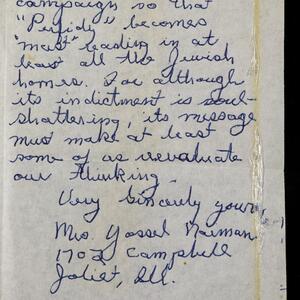 campaign so that
"Perfidy" becomes
"must" reading in at
least all the Jewish
homes. For although
its indictment is soul-
shattering, its message
must make at least
some of us reevaluate
our thinking.
Very Sincerely yours,
Mrs. Yossel Naiman
1702 Campbell
Joliet, Ill.